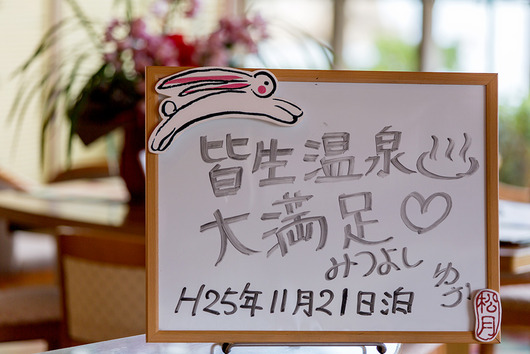 皆生温泉♨
大満足♡
みつよし
H25年11月21日泊
松月